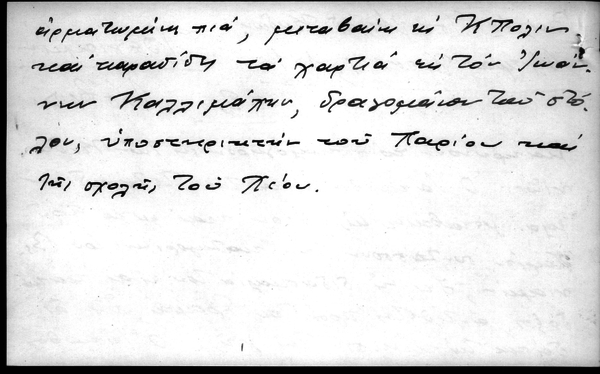 ἁρματωμένη πιά, μεταβαίνει εἰς Κπολιν
καὶ παραδίδει τὰ χαρτιὰ εἰς τὸν Ἰωάν-
νην Καλλιμάχην, δραγομάνον τοῦ στό-
λου, ὑποστηρικτὴν τοῦ Παρίου καὶ
τῆς σχολῆς τοῦ